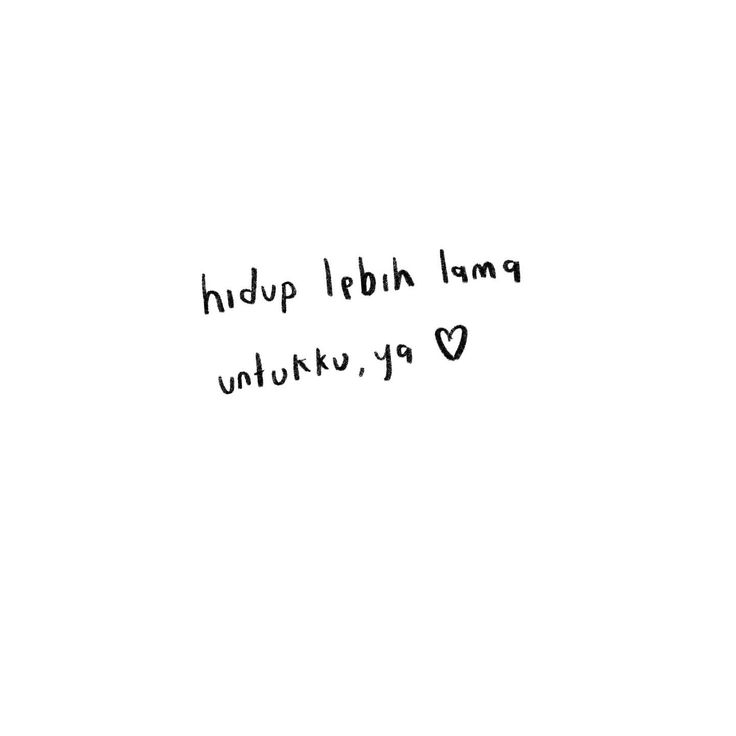 hidup lebih lama
untukku, ya ♡